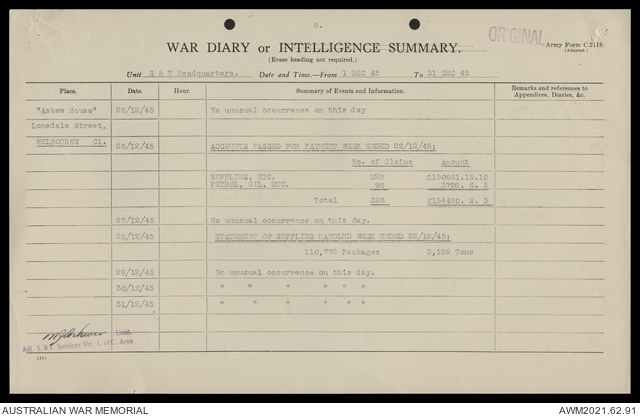 8.
ORIGINAL
WAR DIARY or INTELLIGENCE SUMMARY.
Army Form C.2118.
(Adapted.)
(Erase heading not required.)
Unit S & T Headquarters. Date and Time.—From 1 DEC 45 To 31 DEC 45
Place. Date. Hour. Summary of Events and Information. Remarks and references to Appendices, Diaries, &c.
"Askew House" 25/12/45 No unusual occurrence on this day
Lonsdale Street,
MELBOURNE C1. 26/12/45 ACCOUNTS PASSED FOR PAYMENT WEEK ENDED 22/12/45:
No. of Claims Amount
SUPPLIES, ETC. 228 £150681.15.10
PETROL, OIL, ETC. 98 3798. 6. 5
Total 326 £154480. 2. 3
27/12/45 No unusual occurrence on this day.
28/12/45 STATEMENT OF SUPPLIES HANDLED WEEK ENDED 22/12/45:
110,772 Packages 3,189 Tons
29/12/45 No unusual occurrence on this day.
30/12/45 " " " " " "
31/12/45 " " " " " "
Lieut.
Adj. S. & T. Services Vic. L. of C. Area
AUSTRALIAN WAR MEMORIAL AWM2021.62.91